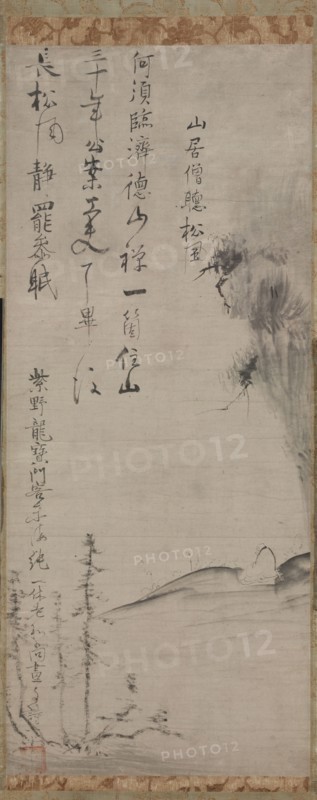 山居僧聽松風
何須臨濟德山禅一箇住山
三十年公案了畢
長松静罷参眠
紫野龍寶門客純一休老和尚畫
PHOTO12
PHOTO12
PHOTO12
PHOTO12
PHOTO12
PHOTO12
PHOTO12
PHOTO12